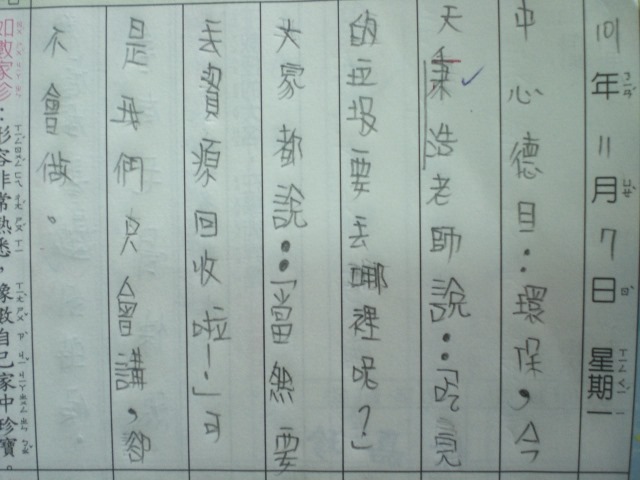 101年11月7日星期一
中心德目:環保,今
天秉浩老師說:「吃完
的垃圾要丟哪裡呢?」
大家都說:「當然要
丟資源回收啦!」可
是我們只會講,卻
不會做。
如數家珍:形容非常熟悉,像數自己家中珍寶。